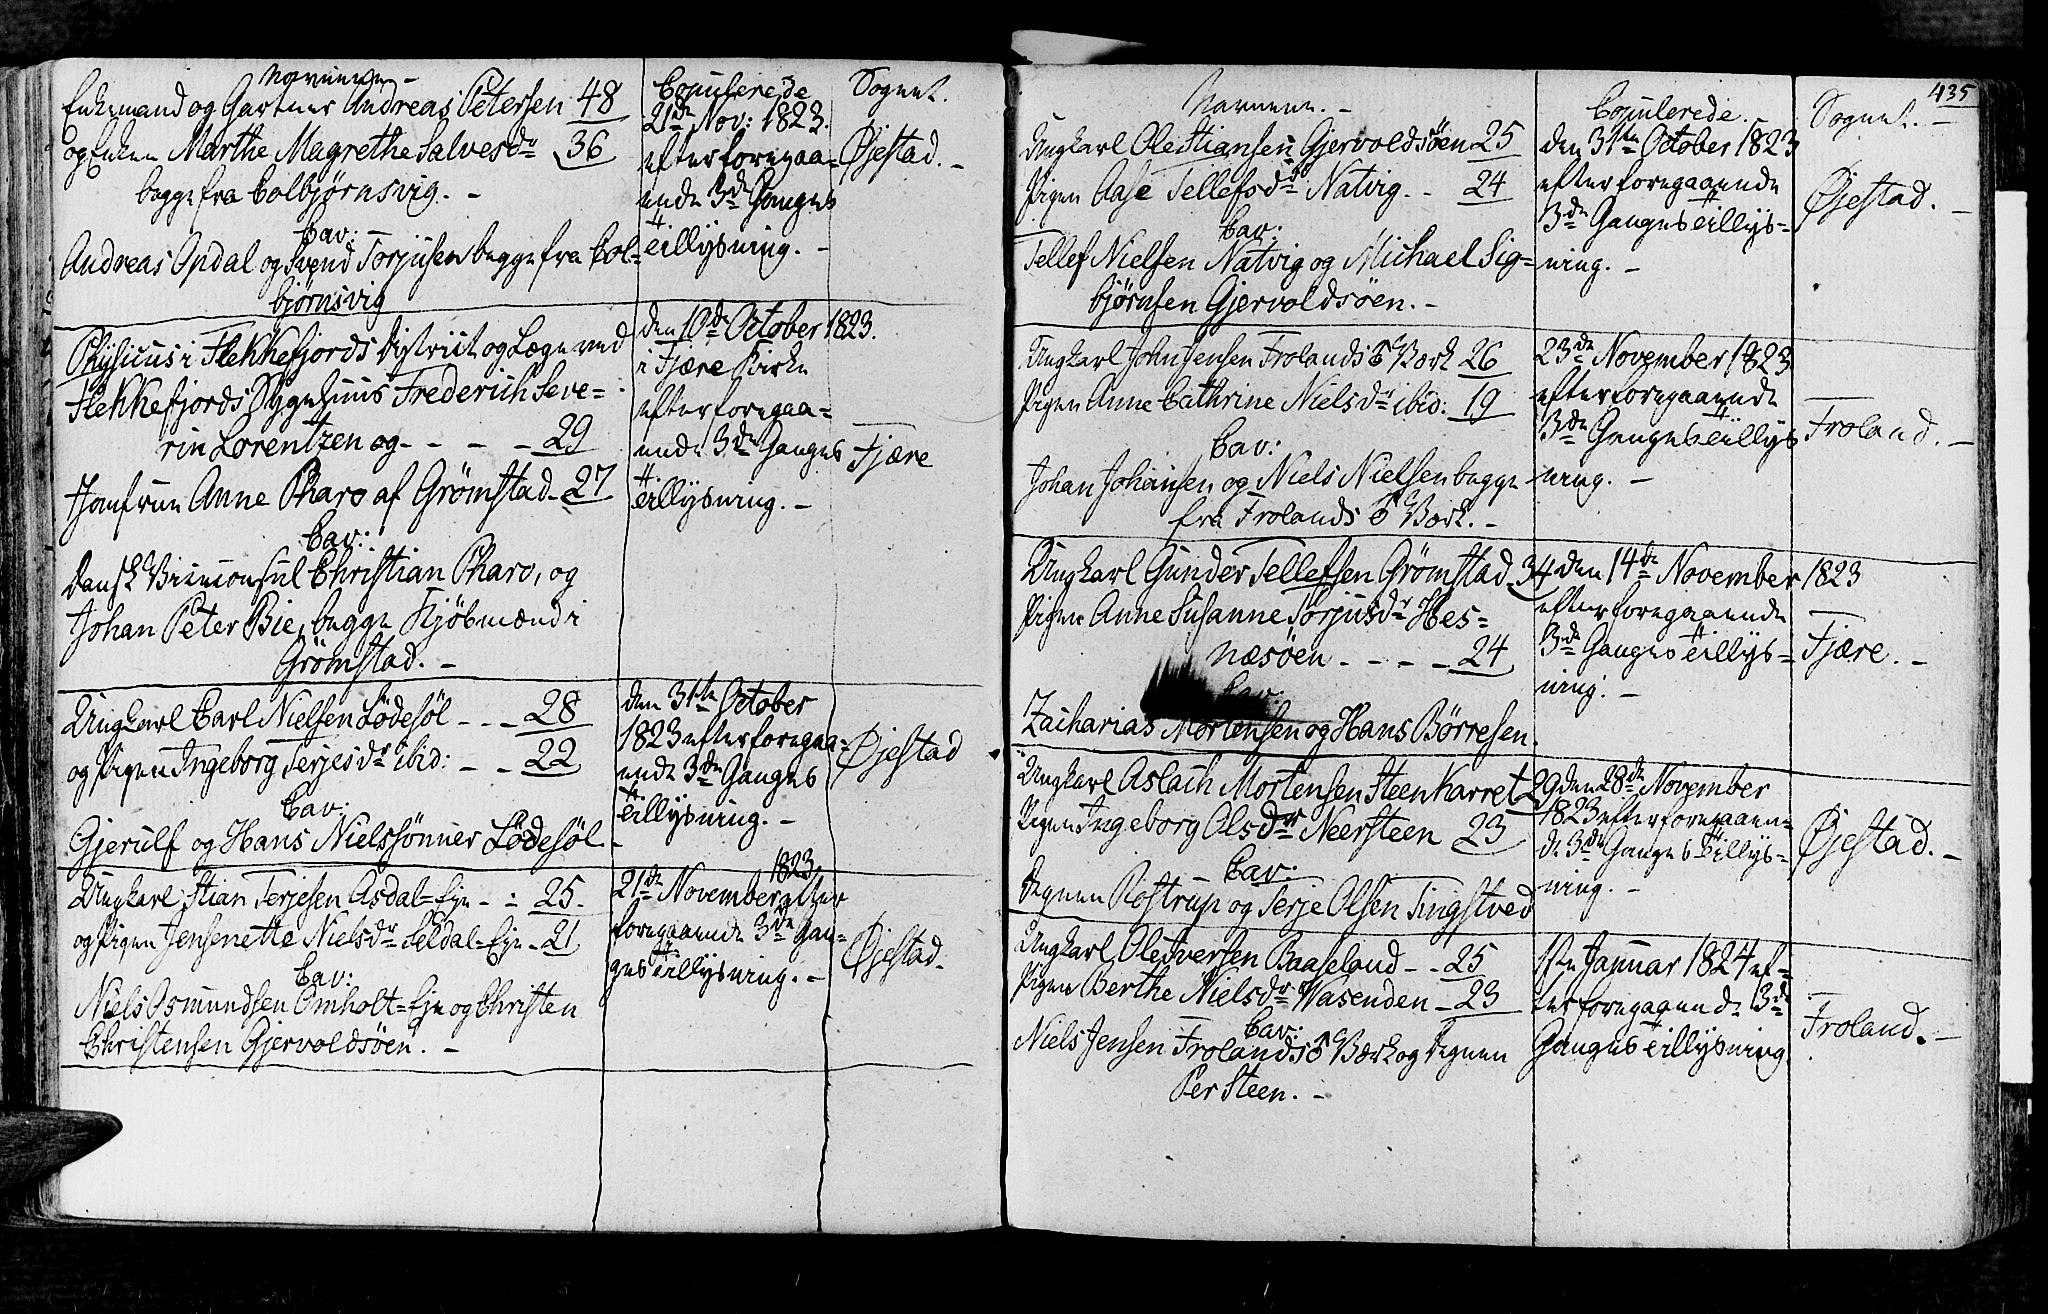 Navnene –
Copulerede
Sognet.
Enkemand og Gartner Andreas Petersen 48
og Enken Marthe Magrethe Salvesdr 36
begge fra Colbjørnsvig. –
Cav: –
Andreas Opdal og Svend Torjusen begge fra Col=
bjørnsvig
21de Nov: 1823.
efter foregaa=
ende 3de Ganges
Tillysning. –
Øjestad. –
Physicus i Flekkefjords District og Læge ved
Flekkefjords Sygehuus Frederich Seve=
rin Lorentzen og - - - - 29
Jomfrue Anne Pharo af Grømstad - 27
Cav:
Dansk Viceconsul Christian Pharo, og
Johan Peter Bie, begge Kjöbmænd i
Grømstad. –
den 10de October 1823.
i Fjære Kirke
efter foregaa=
ende 3de Ganges
Tillysning. –
Fjære
Ungkarl Carl Nielsen Lödesöl - - - 28
og Pigen Ingeborg Terjesdr ibid: - - 22
Cav:
Gjerulf og Hans Nielssönner Lödesöl –
den 31te October
1823 efter foregaa=
ende 3de Ganges
Tillysning. –
Øjestad
Ungkarl Stian Terjesen Asdal=Eje - - 25.
og Pigen Jensenette Nielsdr Seldal=Eje - 21
Cav:
Niels Osmundsen Omholt=Eje og Christen
Christensen Gjervoldsöen. –
1823
21de November efter
foregaaende 3de Gan=
ges Tillysning. –
Øjestad.
435
Navnene. –
Copulerede.
Sognet. –
Ungkarl Ole Stiansen Gjervoldsöen 25
Pigen Aase Tellefsdr Natvig. - 24
Cav:
Tellef Nielsen Natvig og Michael Sig=
björnsen Gjervoldsöen. –
den 31te October 1823
efter foregaaende
3de Ganges Tillys=
ning. –
Øjestad. –
Ungkarl John Jensen Frolands Værk 26
Pigen Anne Cathrine Nielsdr ibid: 19
Cav:
Johan Johansen og Niels Nielsen begge
fra Frolands Værk. –
23de November 1823
efter foregaaende
3de Ganges Tillys
ning. –
Froland. –
Ungkarl Gunder Tellefsen Grømstad 34
Pigen Anne Susanne Torjusdr Hes=
næsöen - - - - 24
Cav:
Zacharias Mortensen og Hans Börresen.
den 14de November 1823
efter foregaaende
3de Ganges Tillys=
ning. –
Fjære. –
Ungkarl Aslach Mortensen Steenkarret 29
Pigen Ingeborg Olsdr Neersteen 23
Cav:
Degnen Rostrup og Terje Olsen Tingstved
den 28de November
1823 efter foregaaen=
de 3de Ganges Tillys=
ning. –
Øjestad. –
Ungkarl Ole Iversen Baaseland - - 25
Pigen Berthe Nielsdr Wasenden - 23
Cav:
Niels Jensen Frolands Værk og Degnen
Per Steen. –
1te Januar 1824 ef=
ter foregaaende 3de
Ganges Tillysning
Froland. –